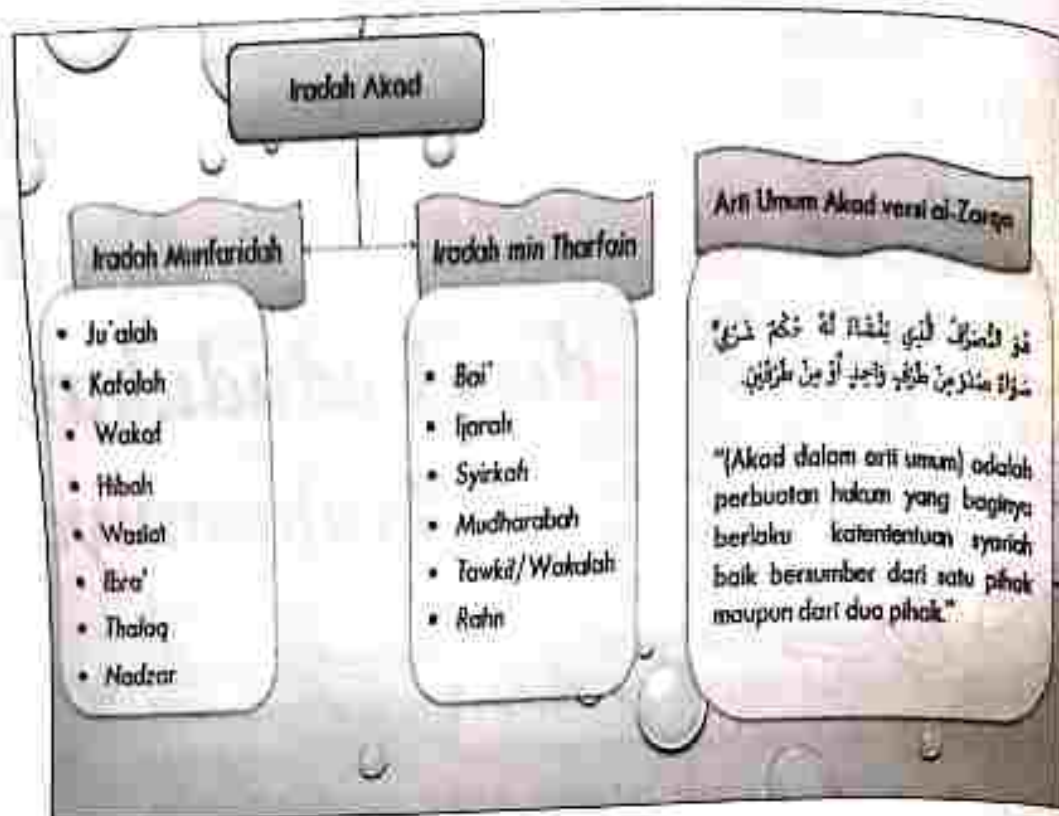 Iradah Akad
Iradah Munfaridah
• Ju'alah
• Kafalah
• Wakaf
• Hibah
• Wasiat
• Ibra'
• Thalaq
• Nadzar
Iradah min Tharfain
• Bai'
• Ijarah
• Syirkah
• Mudharabah
• Tawkil/Wakalah
• Rahn
Arti Umum Akad versi al-Zarqa
هُوَ التَّصَرُّفُ الَّذِي لَهُ حُكْمٌ شَرْعِيٌّ
سَوَاءٌ صَدَرَ مِنْ طَرَفٍ وَاحِدٍ أَوْ مِنْ طَرَفَيْنِ.
"(Akad dalam arti umum) adalah
perbuatan hukum yang baginya
berlaku katententuan syariah
baik bersumber dari satu pihak
maupun dari dua pihak."